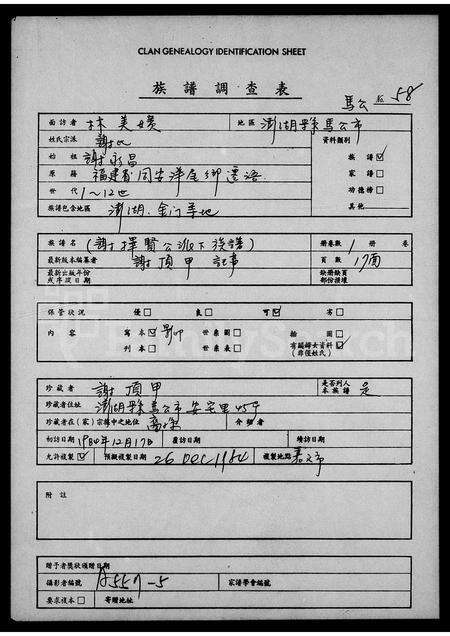 CLAN GENEALOGY IDENTIFICATION SHEET
族譜調查表
馬公 № 58
面訪者 林美媛 地區 澎湖縣馬公市
姓氏宗派 謝氏 資料類別
始祖 謝永昌 族譜☑
原籍 福建省同安 家譜□
世代 1～12世 功德榜□
族譜包含地區 澎湖.金门等地 其他
族譜名 (謝擇賢公派下族譜) 冊卷數 1 冊 卷
最新版本編纂者 謝頂甲 記事 頁數 17面
最新出版年份 缺冊缺頁
或序跋日期 部份損壞
保管狀況 優□ 良□ 可☑ 劣□
內容 寫本☑ 世系圖□ 繪圖□
刊本□ 世系表□ 有關婦女資料☑
(非僅姓氏)
珍藏者 謝頂甲 是否列入本族譜 是
珍藏者住址 澎湖縣馬公市安宅里45号
珍藏者在(家)宗族中之地位 裔孫 介紹者
初訪日期 1984年12月17日 覆訪日期 續訪日期
允許複製☑ 預擬複製日期 26 DEC 1984 複製地點 嘉义市
附註
贈予者獎狀頒贈日期
攝影者編號 A5507-5 家譜學會編號
要求複本□ 寄贈地址